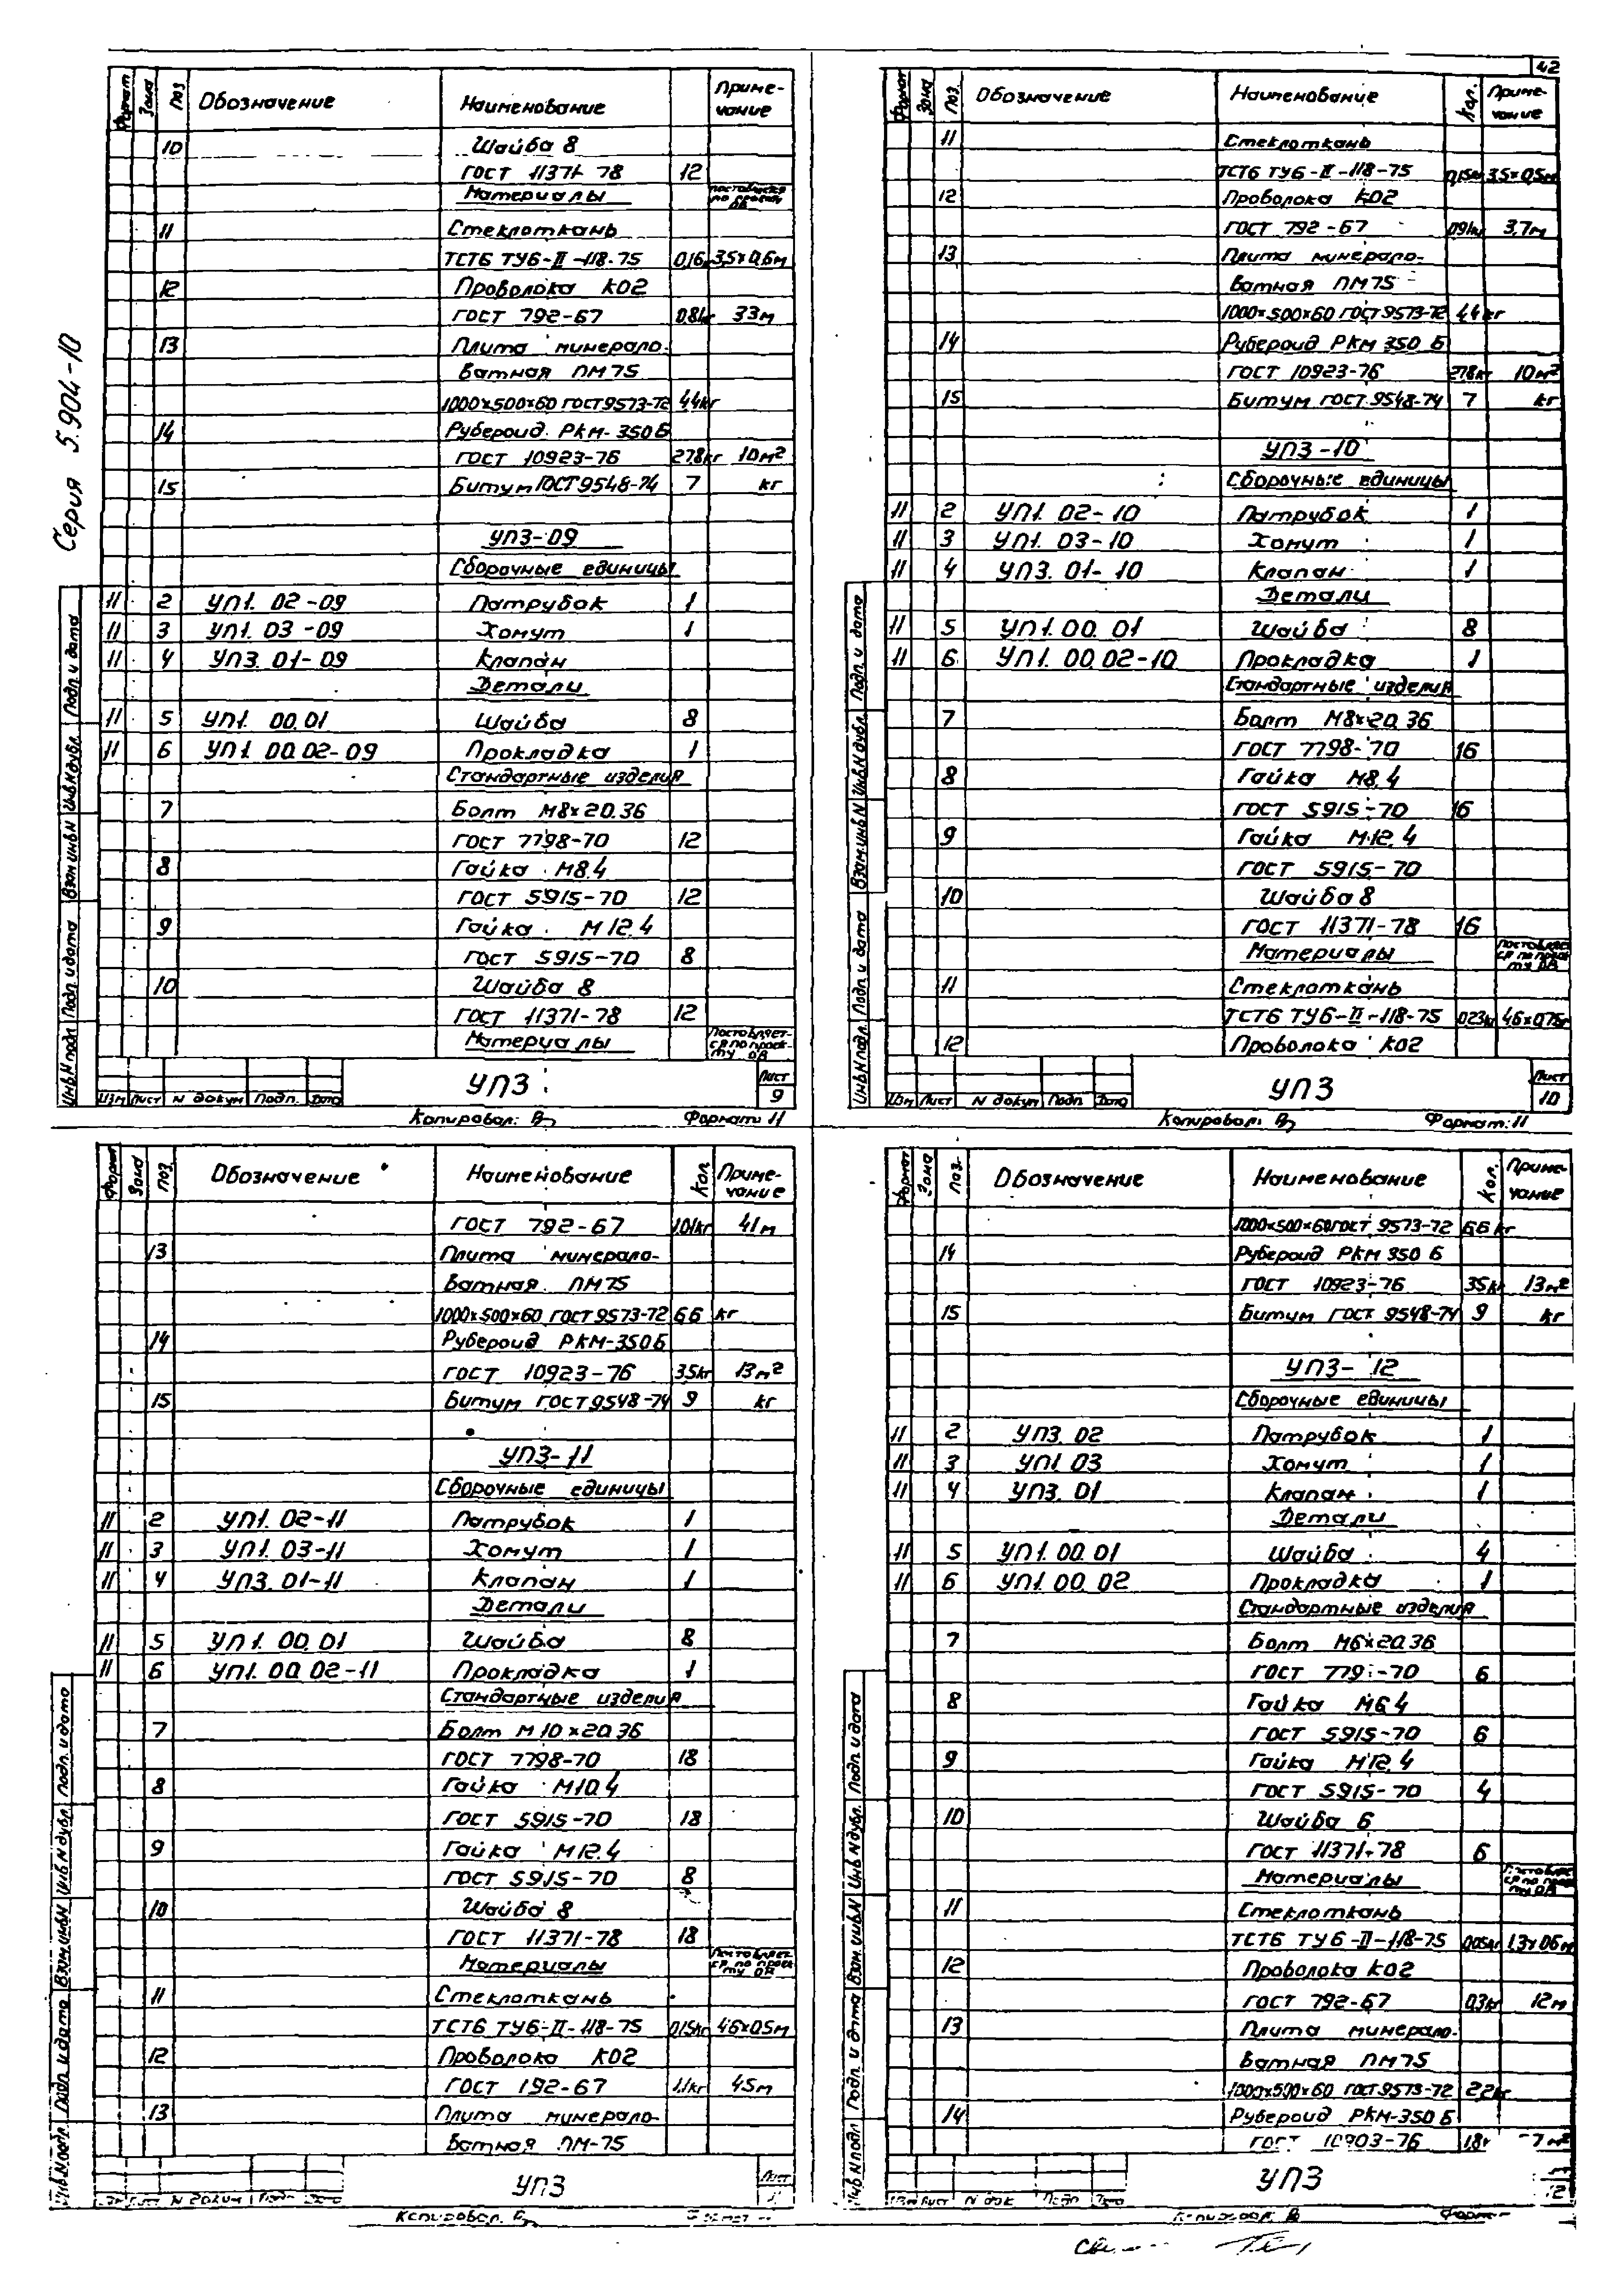 42
Серия 5.904-10
Формат Зона Поз Обозначение Наименование Приме-
чание
10 Шайба 8
ГОСТ 11371-78 12
Материалы
11 Стеклоткань
ТСТБ ТУ6-II-118-75 0,16 3,5×0,6м
12 Проволока КО2
ГОСТ 792-67 0.8kг 33м
13 Плита минерало-
ватная ПМ75
1000×500×60 ГОСТ9573-72 4,4кг
14 Рубероид РКМ-350Б
ГОСТ 10923-76 27.8кг 10м²
15 Битум ГОСТ9548-74 7 кг
УПЗ-09
Сборочные единицы
11 2 УП1. 02-09 Патрубок 1
11 3 УП1. 03-09 Хомут 1
11 4 УПЗ. 01-09 Клапан
Детали
11 5 УП1. 00.01 Шайба 8
11 6 УП1. 00.02-09 Прокладка 1
Стандартные изделия
7 Болт М8×20.36
ГОСТ 7798-70 12
8 Гайка М8.4
ГОСТ 5915-70 12
9 Гайка М12.4
ГОСТ 5915-70 8
10 Шайба 8
ГОСТ 11371-78 12
Материалы Поставляет-
ся по проек-
ту ОВ
УПЗ Лист
9
Изм Лист N докум Подп. Дата
Копировал: Формат 11
Инв.N подл. Подп. и дата Взам.инв.N Инв.N дубл. Подп. и дата
Формат Зона Поз. Обозначение Наименование Кол. Приме-
чание
11 Стеклоткань
ТСТБ ТУ6-II-118-75 0,15кг 3.5×0,5м
12 Проволока КО2
ГОСТ 792-67 0.91кг 3,7м
13 Плита минерало-
ватная ПМ75
1000×500×60 ГОСТ9573-72 4,4кг
14 Рубероид РКМ 350 Б
ГОСТ 10923-76 27.8кг 10м²
15 Битум ГОСТ 9548-74 7 кг
УПЗ-10
Сборочные единицы
11 2 УП1. 02-10 Патрубок 1
11 3 УП1. 03-10 Хомут 1
11 4 УПЗ. 01-10 Клапан 1
Детали
11 5 УП1.00.01 Шайба 8
11 6 УП1.00.02-10 Прокладка 1
Стандартные изделия
7 Болт М8×20.36
ГОСТ 7798-70 16
8 Гайка М8.4
ГОСТ 5915-70 16
9 Гайка М12.4
ГОСТ 5915-70
10 Шайба 8
ГОСТ 11371-78 16
Материалы
11 Стеклоткань
ТСТБ ТУ6-II-118-75 0.23кг
12 Проволока КО2
УПЗ Лист
10
Изм Лист N докум Подп Дата
Копировал: Формат: 11
Инв.N подл. Подп. и дата Взам.инв.N Инв.N дубл. Подп. и дата
Формат Зона Поз. Обозначение Наименование Кол. Приме-
чание
ГОСТ 792-67 1.01кг 41м
13 Плита минерало-
ватная ПМ75
1000×500×60 ГОСТ9573-72 6.6 кг
14 Рубероид РКМ-350Б
ГОСТ 10923-76 35кг 13м²
15 Битум ГОСТ9548-74 9 кг
УПЗ-11
Сборочные единицы
11 2 УП1. 02-11 Патрубок 1
11 3 УП1. 03-11 Хомут 1
11 4 УПЗ. 01-11 Клапан 1
Детали
11 5 УП1. 00.01 Шайба 8
11 6 УП1. 00.02-11 Прокладка 1
Стандартные изделия
7 Болт М10×20.36
ГОСТ 7798-70 18
8 Гайка М10.4
ГОСТ 5915-70 18
9 Гайка М12.4
ГОСТ 5915-70 8
10 Шайба 8
ГОСТ 11371-78 18
Материалы Поставляет-
ся по проек-
ту ОВ
11 Стеклоткань
ТСТБ ТУ6-II-118-75 0,15кг 4.6×0.5м
12 Проволока КО2
ГОСТ 192-67 1.1кг 45м
13 Плита минерало-
ватная ПМ-75
УПЗ Лист
N докум Подп Дата
Копировал:
Инв.N подл. Подп. и дата Взам.инв.N Инв.N дубл. Подп. и дата
Формат Зона Поз. Обозначение Наименование Кол. Приме-
чание
1000×500×60 ГОСТ 9573-72 6.6 кг
14 Рубероид РКМ 350 Б
ГОСТ 10923-76 35кг 13м²
15 Битум ГОСТ 9548-74 9 кг
УПЗ-12
Сборочные единицы
11 2 УПЗ. 02 Патрубок 1
11 3 УП1.03 Хомут 1
11 4 УПЗ. 01 Клапан 1
Детали
11 5 УП1.00.01 Шайба 4
11 6 УП1.00.02 Прокладка 1
Стандартные изделия
7 Болт М6×20.36
ГОСТ 779 -70 6
8 Гайка М6.4
ГОСТ 5915-70 6
9 Гайка М12.4
ГОСТ 5915-70 4
10 Шайба 6
ГОСТ 11371-78 6
Материалы
11 Стеклоткань
ТСТБ ТУ6-II-118-75 0.05кг 1.3×0.6м
12 Проволока КО2
ГОСТ 792-67 0.3кг 12м
13 Плита минерало-
ватная ПМ75
1000×500×60 ГОСТ9573-72 2,2кг
14 Рубероид РКМ-350Б
ГОСТ 10903-76 7 м²
УПЗ
Лист N док Подп Дата
Копировал: Формат
Инв.N подл Подп. и дата Взам.инв.N Инв.N дубл. Подп. и дата